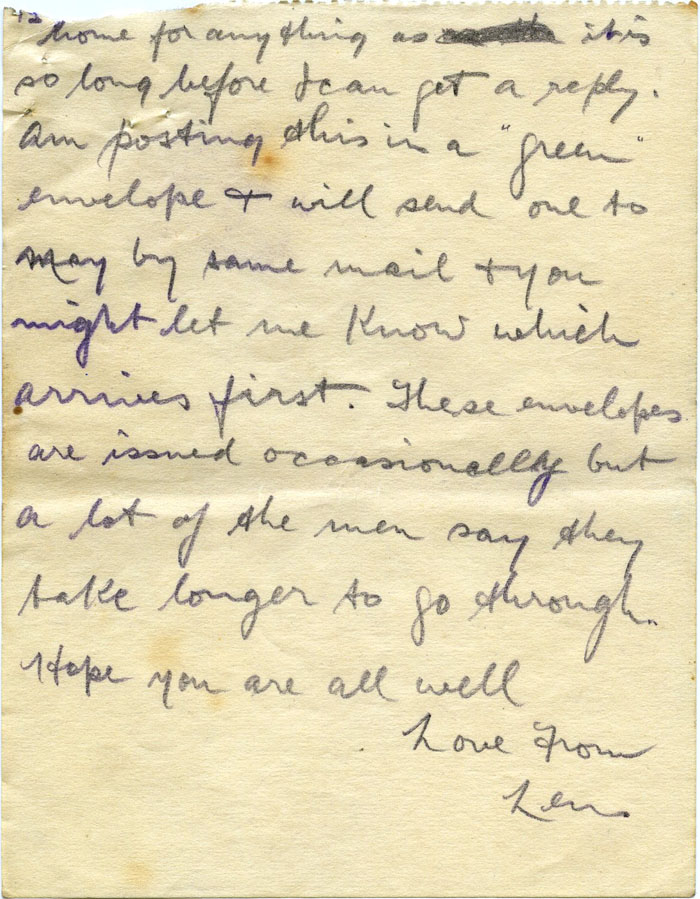 42
home for anything as it is
so long before I can get a reply.
Am posting this in a "green"
envelope + will send one to
May by same mail + you
might let me know which
arrives first. These envelopes
are issued occassionally but
a lot of the men say they
take longer to go through.
Hope you are all well
Love From
Len